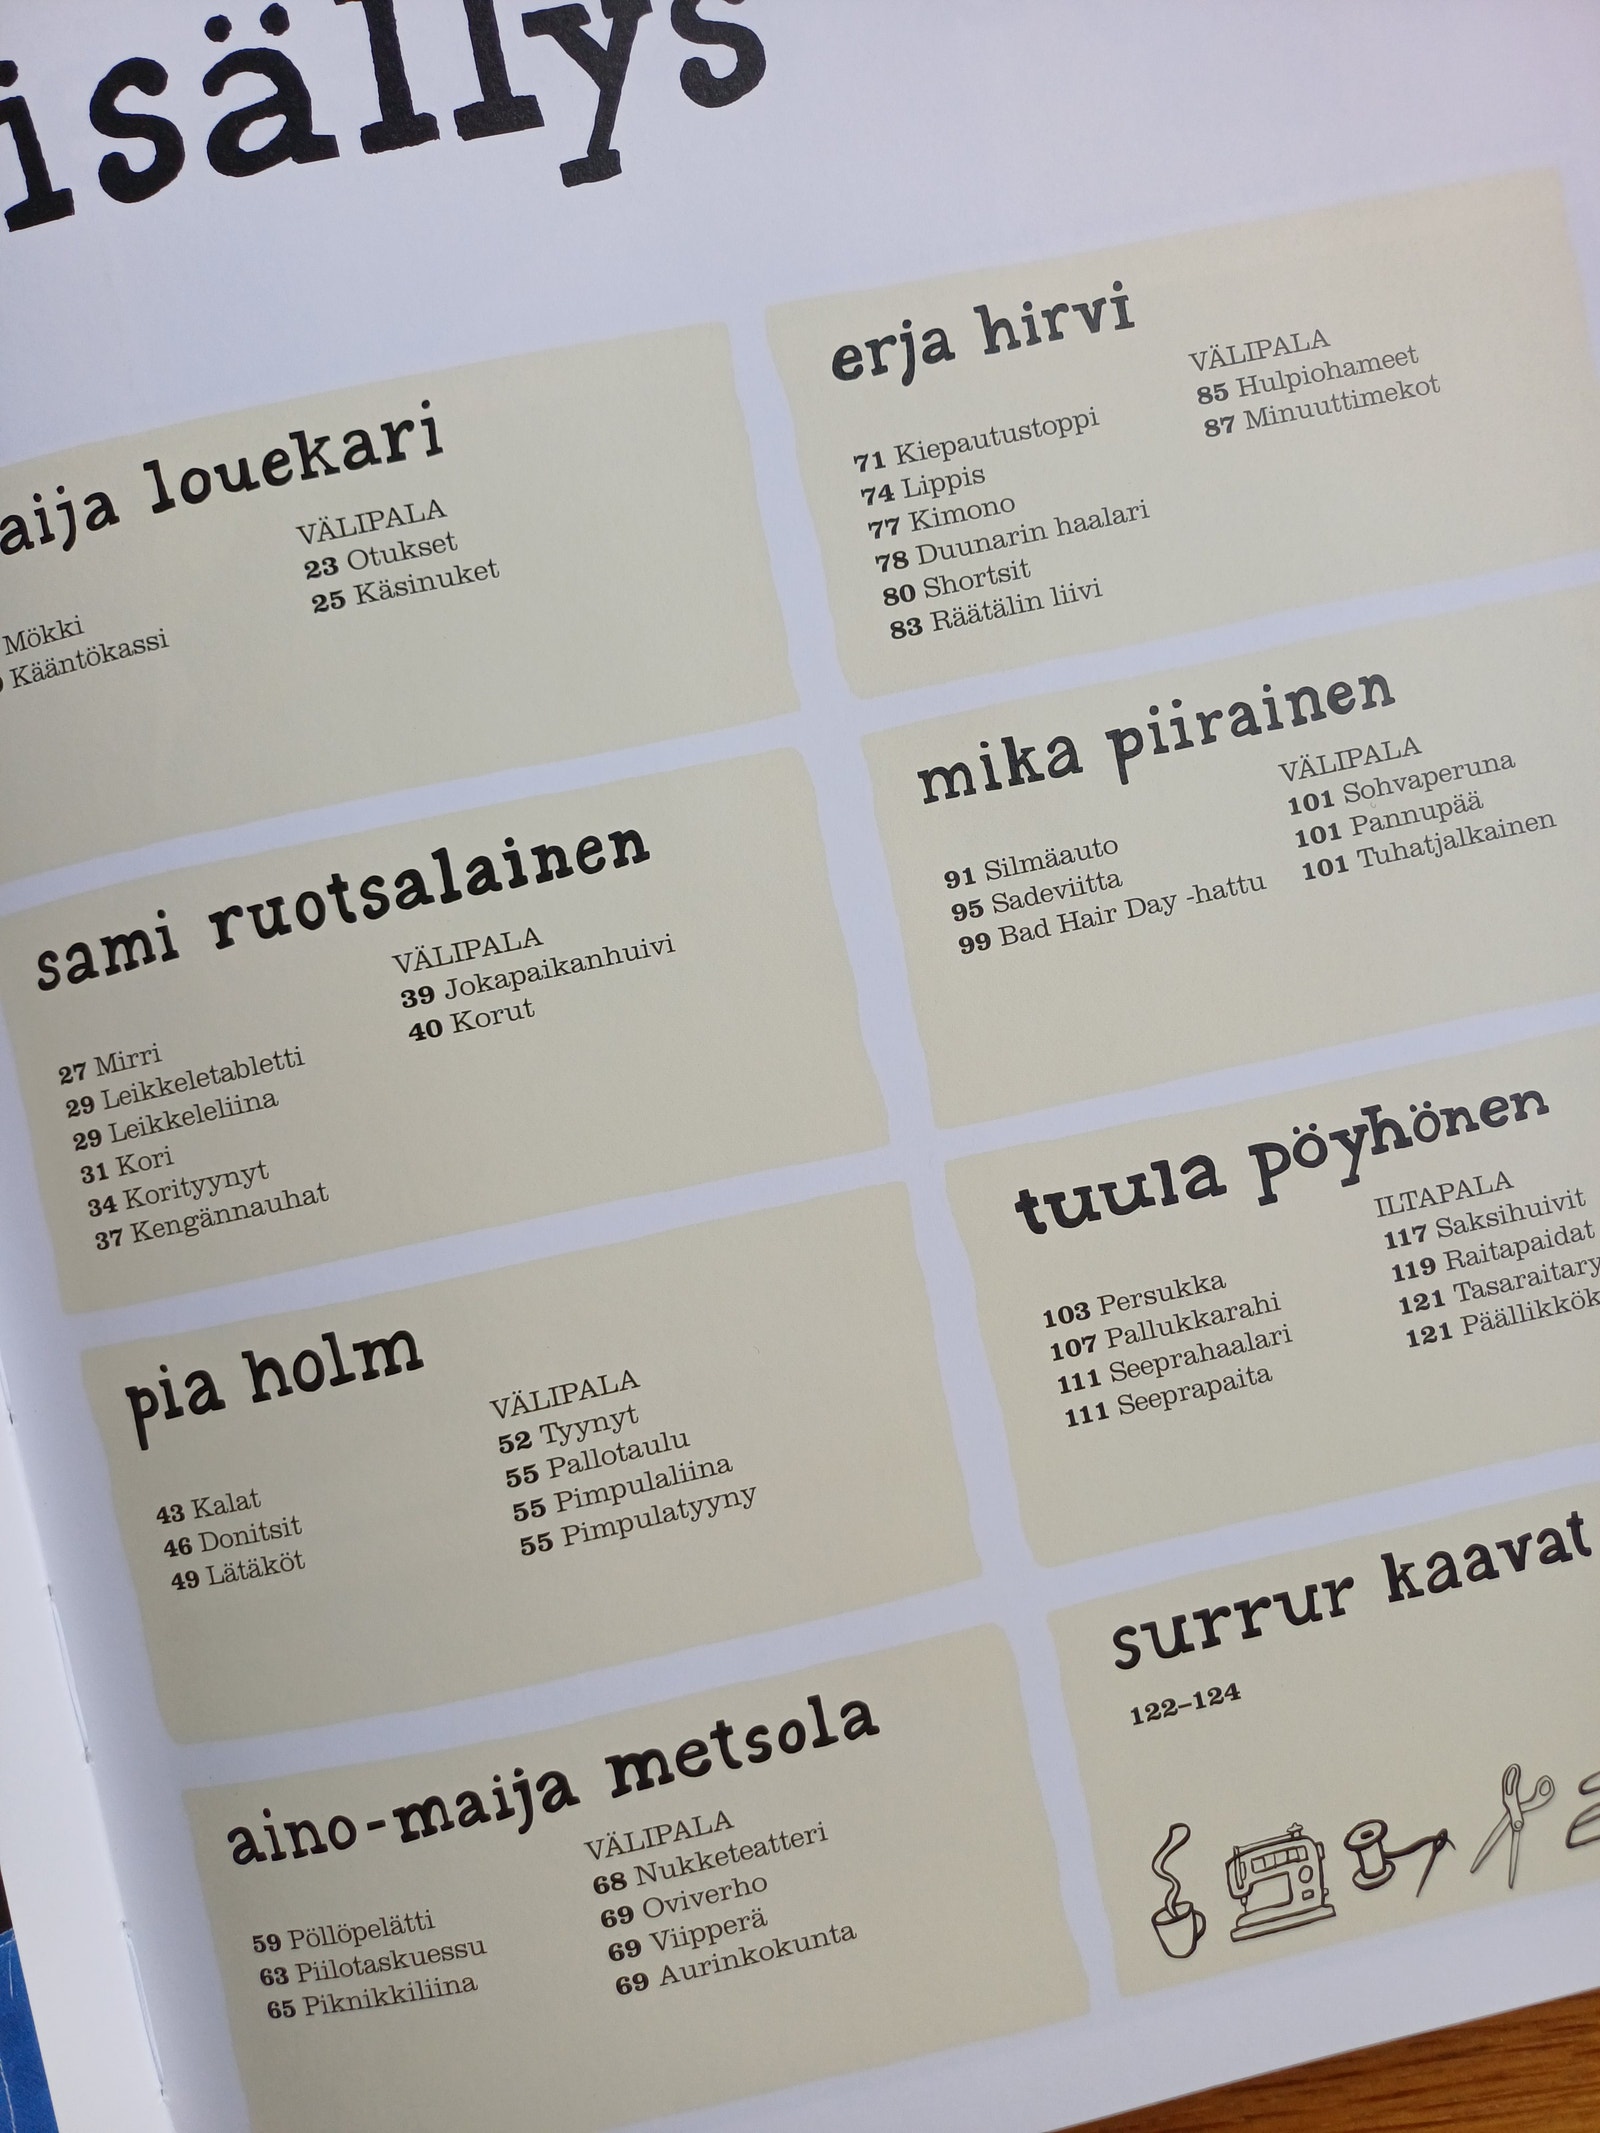 sisällys
aija louekari
Mökki
Kääntökassi
VÄLIPALA
23 Otukset
25 Käsinuket
sami ruotsalainen
27 Mirri
29 Leikkeletabletti
29 Leikkeleliina
31 Kori
34 Korityynyt
37 Kengännauhat
VÄLIPALA
39 Jokapaikanhuivi
40 Korut
pia holm
43 Kalat
46 Donitsit
49 Lätäköt
VÄLIPALA
52 Tyynyt
55 Pallotaulu
55 Pimpulaliina
55 Pimpulatyyny
aino-maija metsola
59 Pöllöpelätti
63 Piilotaskuessu
65 Piknikkiliina
VÄLIPALA
68 Nukketeatteri
69 Oviverho
69 Viipperä
69 Aurinkokunta
erja hirvi
71 Kiepautustoppi
74 Lippis
77 Kimono
78 Duunarin haalari
80 Shortsit
83 Räätälin liivi
VÄLIPALA
85 Hulpiohameet
87 Minuuttimekot
mika piirainen
91 Silmäauto
95 Sadeviitta
99 Bad Hair Day -hattu
VÄLIPALA
101 Sohvaperuna
101 Pannupää
101 Tuhatjalkainen
tuula pöyhönen
103 Persukka
107 Pallukkarahi
111 Seeprahaalari
111 Seeprapaita
ILTAPALA
117 Saksihuivit
119 Raitapaidat
121 Tasaraitary
121 Päällikkök
surrur kaavat
122–124